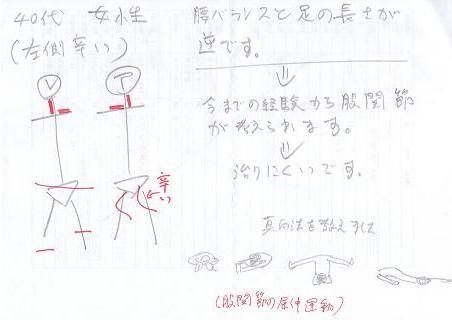 40代 女性
(左側辛い)
腰バランスと足の長さが
逆です。
今までの経験から股関節
が考えられます。
治りにくいです。
辛い
真向法を教えました
(股関節の屈伸運動)